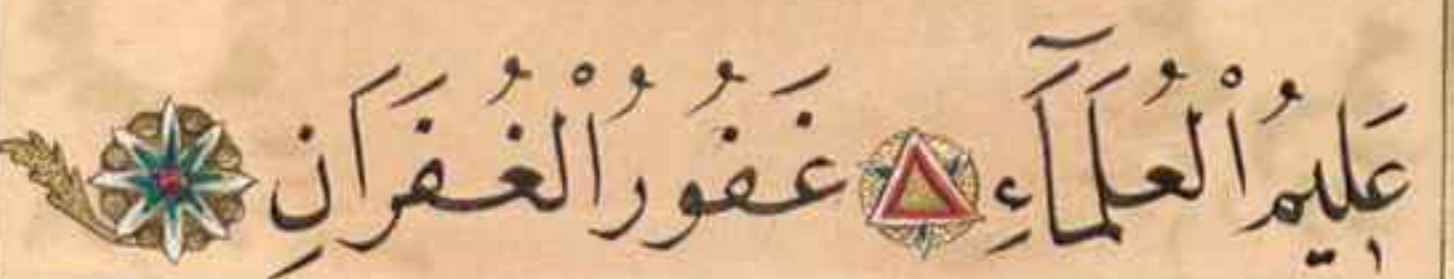 عَلِيمُ الْعُلَمَآءِ غَفُورُ الْغُفَرَانِ